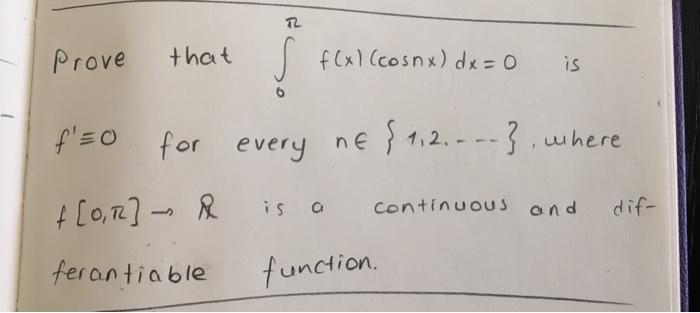 Prove that ∫₀^π f(x) (cosnx) dx = 0 is
f'≡0 for every n∈ {1,2.----}, where
f [0,π] → R is a continuous and dif-
ferantiable function.